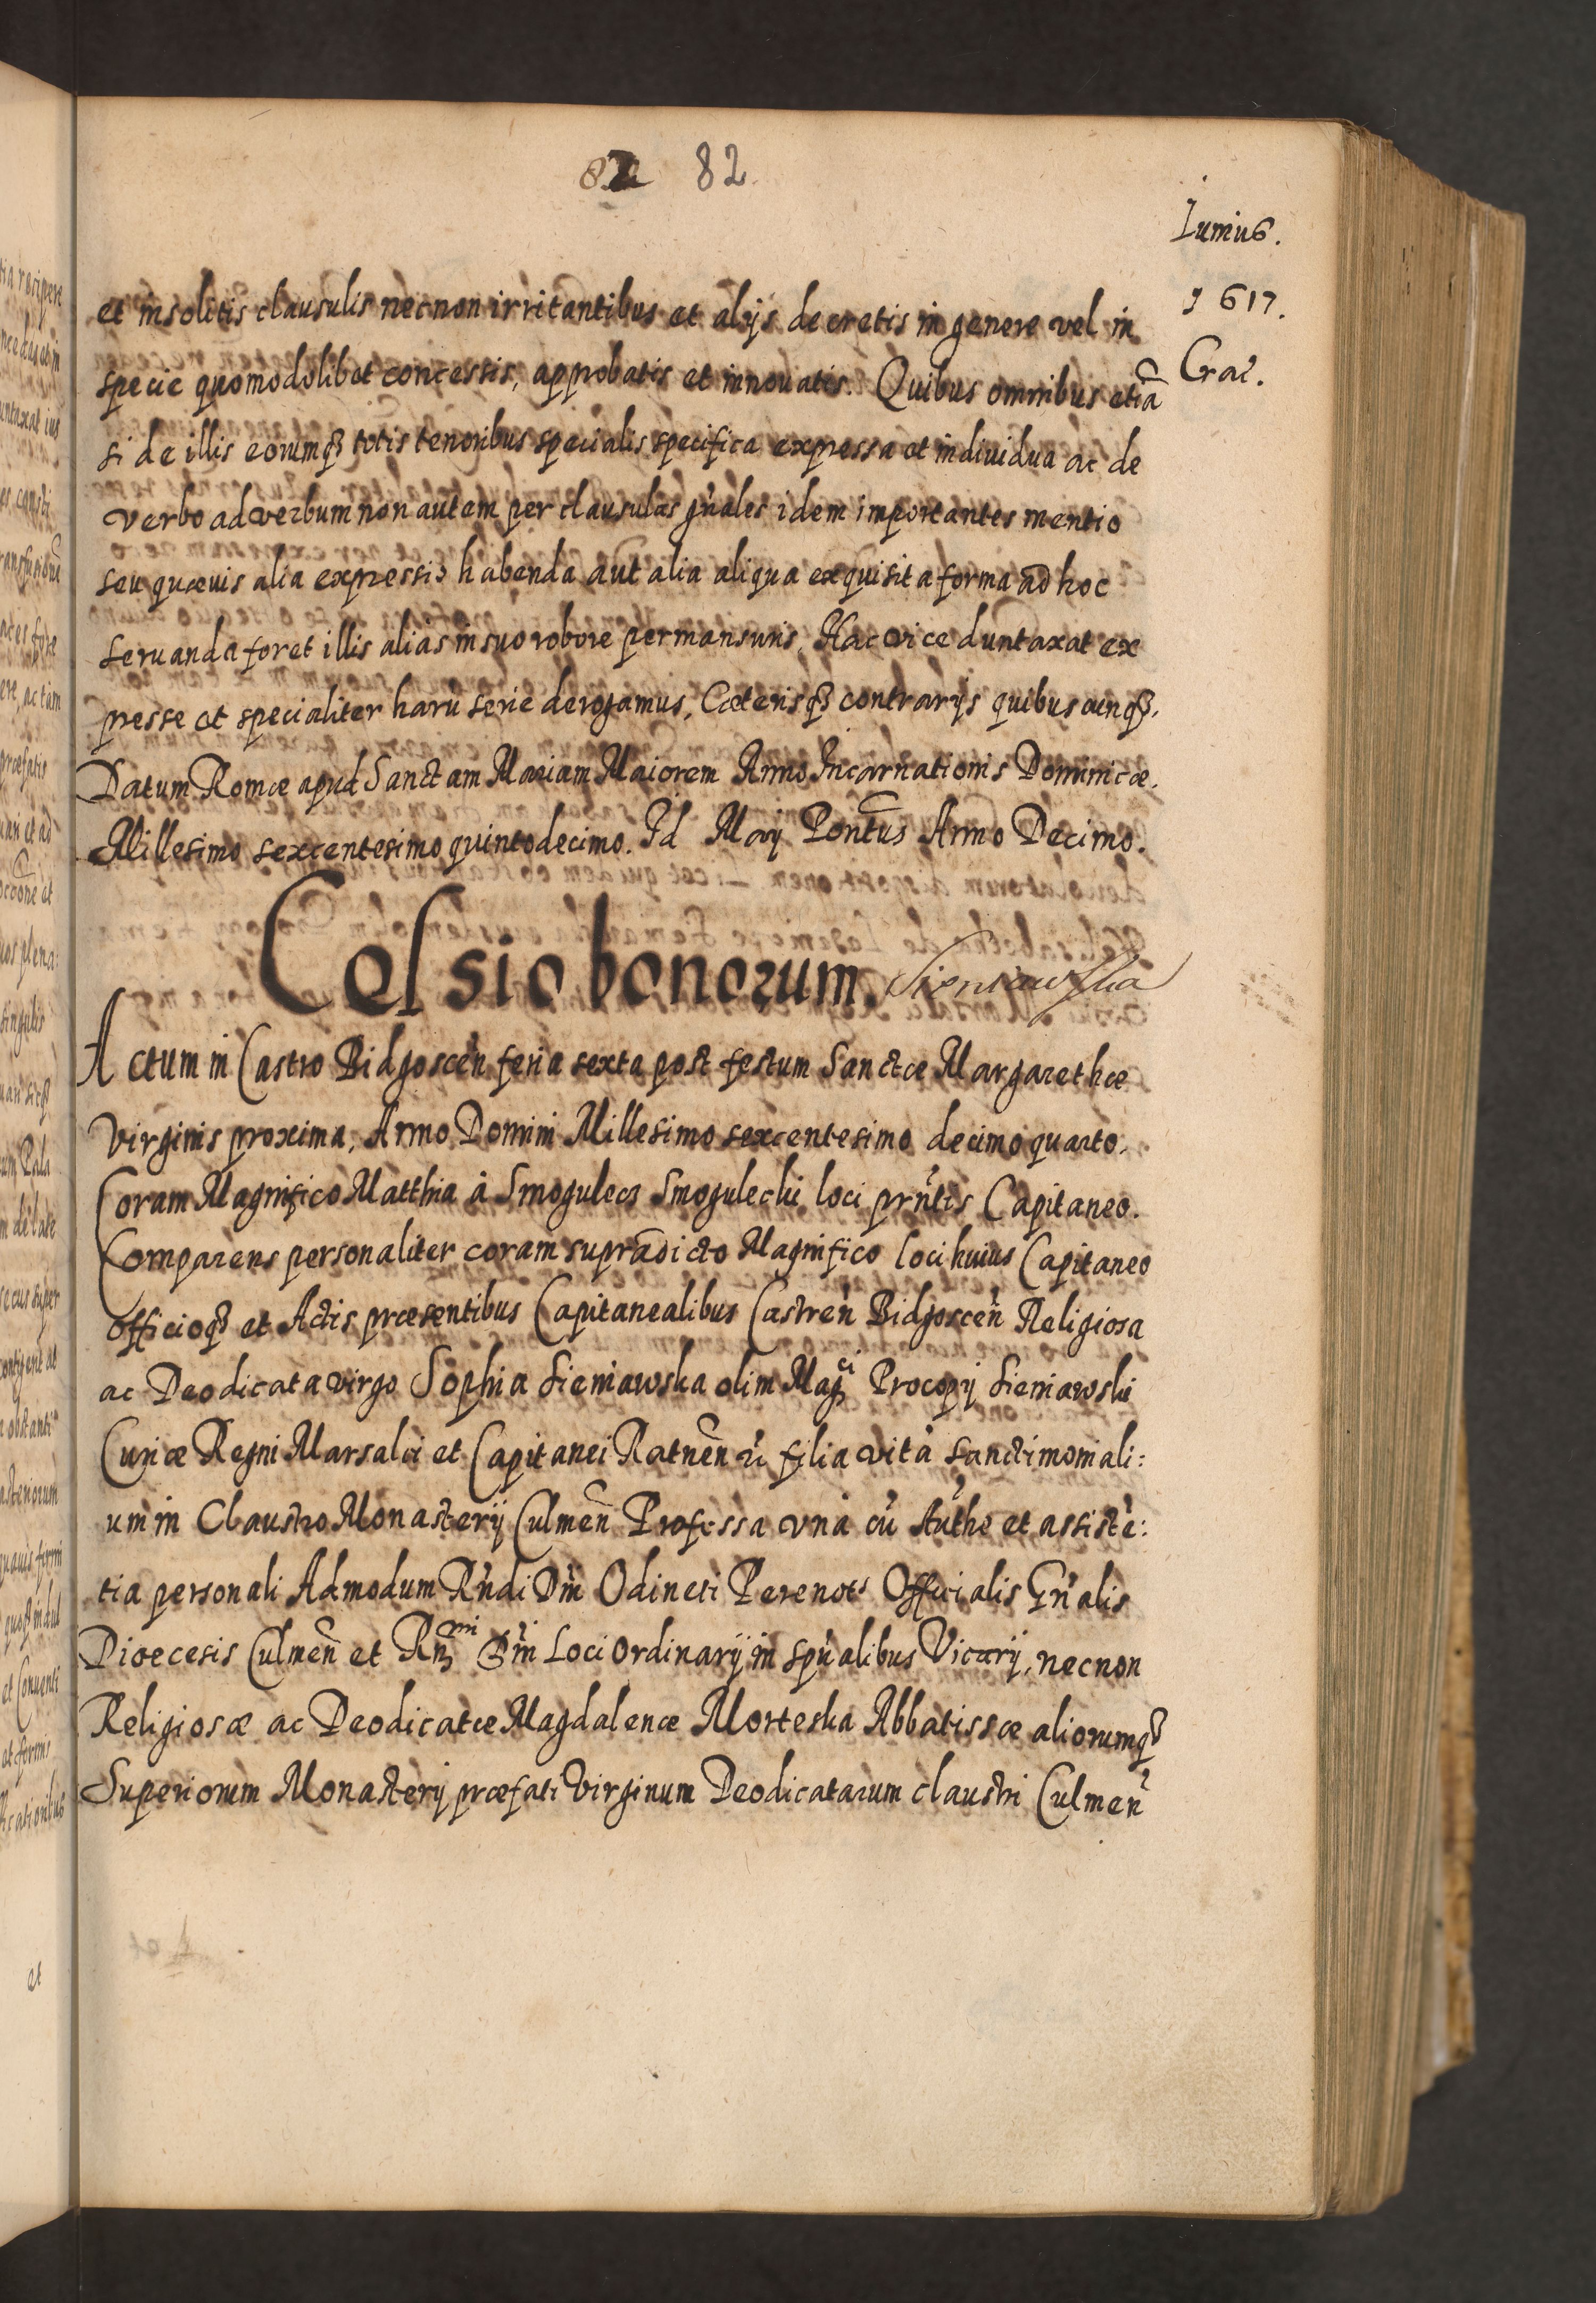 82 82
Iunius.
1617.
Crac.
et insolitis clausulis necnon irritantibus et alijs decretis in genere vel in
specie quomodolibet concessis, approbatis et innouatis. Quibus omnibus etiã
si de illis eorumq₃ totis tenoribus specialis specifica expressa et indiuidua ac de
verbo ad verbum non autem per clausulas gñales idem importantes mentio
seu quæuis alia expressio habenda aut alia aliqua exquisita forma ad hoc
seruanda foret illis aliàs in suo robore permansuris, Hac vice duntaxat ex
presse et specialiter harũ serie derogamus, Cæterisq₃ contrarijs quibuscunq₃.
Datum Romæ apud Sanctam Mariam Maiorem Anno Incarnationis Dominicæ.
Millesimo sexcentesimo quintodecimo. Id Maij Pontũs Anno Decimo.
Cessio bonorum. Sieniawska
Actum in Castro Bidgosceñ feria sexta post festum Sanctæ Margarethæ
Virginis proxima, Anno Domini Millesimo sexcentesimo decimo quarto.
Coram Magnifico Matthia à Smogulecz Smogulecki loci prñtis Capitaneo.
Comparens personaliter coram supradicto Magnifico loci huius Capitaneo
officioq₃ et Actis præsentibus Capitanealibus Castreñ Bidgosceñ Religiosa
ac Deodicata virgo Sophia Sieniawska olim Mag^ci Procopij Sieniawski
Curiæ Regni Marsalci et Capitanei Ratneñ filia vitã sanctimoniali:
um in Claustro Monasterij Culmeñ Professa vnà cũ Authe et assistẽ:
tia personali Admodum Rñdi Dñi Odineti Perenots Officialis Gñalis
Diœcesis Culmeñ et Rm^mi Dñi Loci Ordinarij in spũalibus Vicarij, necnon
Religiosæ ac Deodicatæ Magdalenæ Morteska Abbatissæ aliorumq₃
Superiorum Monasterij præfati Virginum Deodicatarum claustri Culmeñ